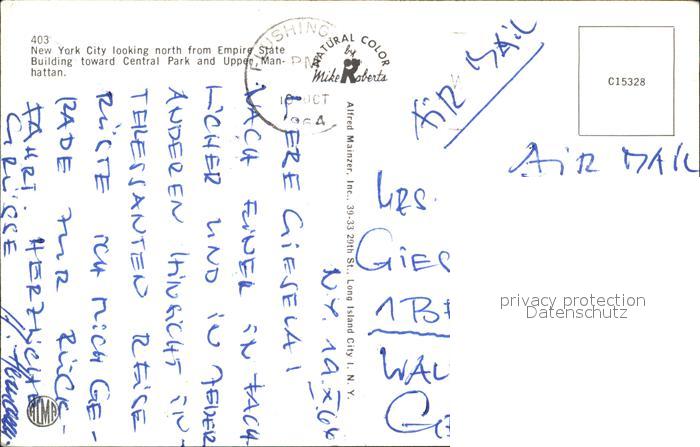 403
New York City looking north from Empire State
Building toward Central Park and Upper Man-
hattan.
FLUSHING
PM
OCT
NATURAL COLOR
by
Mike Roberts
C15328
Alfred Mainzer, Inc., 39-33 29th St., Long Island City 1, N. Y.
AIR MAIL
AIR MAIL
N.Y. 19.X.64
LIEBE GIESELA!
NACH EINER IN FACH
LICHER UND IN JEDER
ANDEREN HINSICHT IN-
TERESSANTEN REISE
RÜSTE ICH MICH GE-
RADE ZUR RÜCK-
FAHRT. HERZLICHE
GRÜSSE
MRS.
GIES
1 BE
WAL
GE
privacy protection
Datenschutz